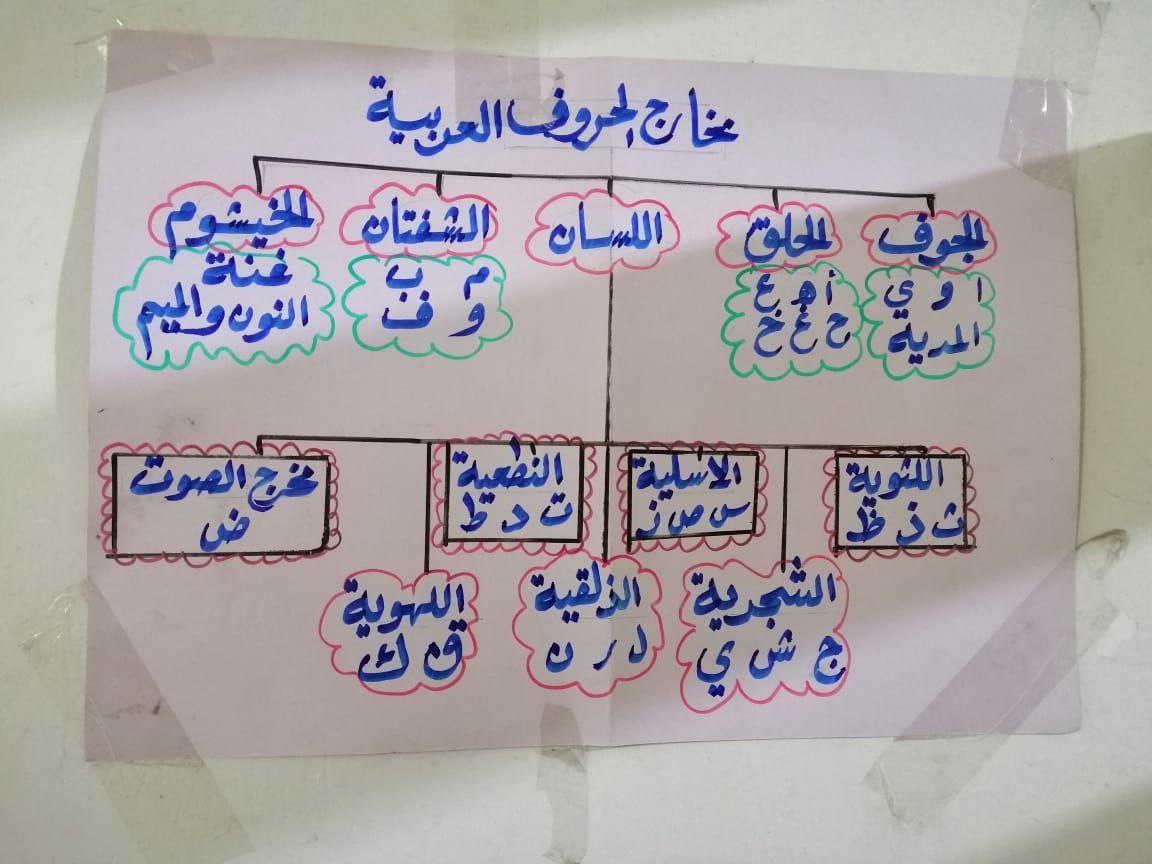 مخارج الحروف العربية
الجوف
ا و ي
المدية
الحلق
أ هـ ع
ح غ خ
اللسان
الشفتان
م ب
و ف
الخيشوم
غنة
النون والميم
اللثوية
ث ذ ظ
الاسلية
س ص ز
النطعية
ت د ط
مخرج الصوت
ض
الشجرية
ج ش ي
الذلقية
ل ر ن
اللهوية
ق ك